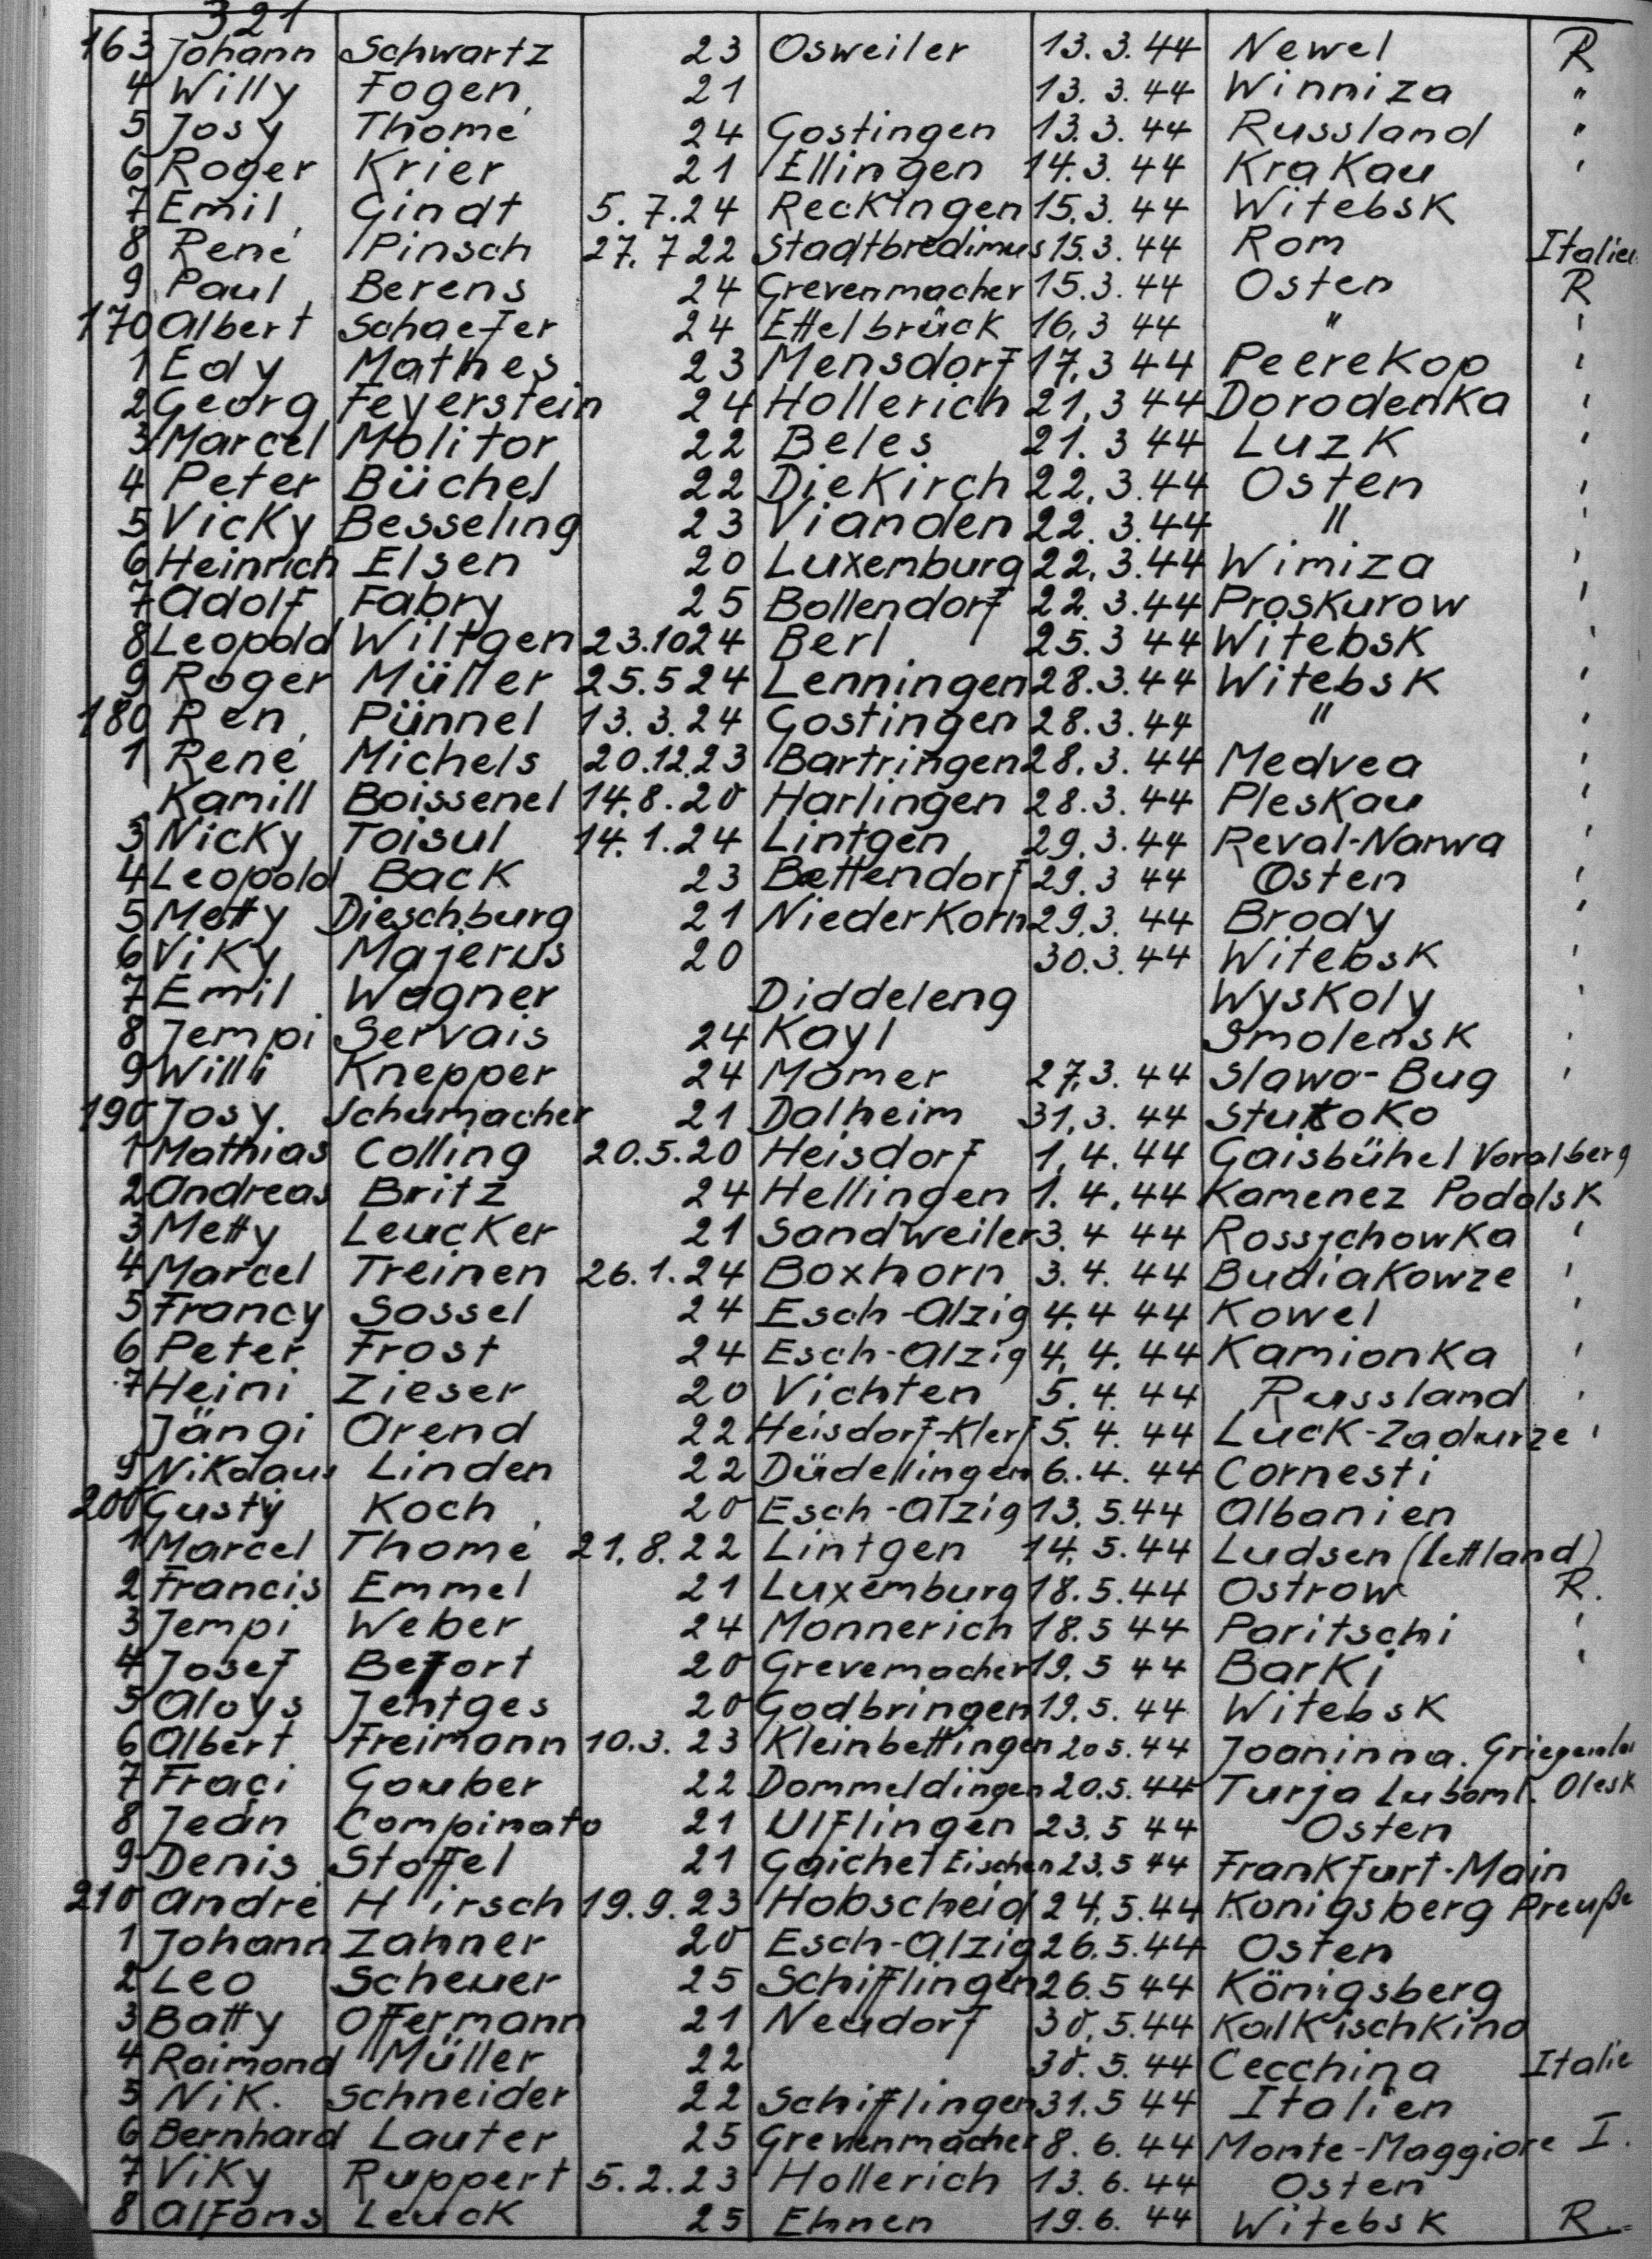 321
163 Johann Schwartz 23 Osweiler 13.3.44 Newel R
4 Willy Fogen 21 13.3.44 Winniza "
5 Josy Thomé 24 Gostingen 13.3.44 Russland "
6 Roger Krier 21 Ellingen 14.3.44 Krakau '
7 Emil Gindt 5.7.24 Reckingen 15.3.44 Witebsk
8 René Pinsch 27.7 22 Stadtbredimus 15.3.44 Rom Italien
9 Paul Berens 24 Grevenmacher 15.3.44 Osten R
170 Albert Schaefer 24 Ettelbrück 16.3 44 " '
1 Edy Mathes 23 Mensdorf 17.3 44 Peerekop '
2 Georg Feyerstein 24 Hollerich 21.3 44 Dorodenka '
3 Marcel Molitor 22 Beles 21.3 44 Luzk '
4 Peter Büchel 22 Diekirch 22.3.44 Osten '
5 Vicky Besseling 23 Vianden 22.3.44 " '
6 Heinrich Elsen 20 Luxemburg 22.3.44 Wimiza '
7 Adolf Fabry 25 Bollendorf 22.3.44 Proskurow '
8 Leopold Wiltgen 23.10 24 Berl 25.3 44 Witebsk '
9 Roger Müller 25.5 24 Lenningen 28.3.44 Witebsk '
180 Ren. Pünnel 13.3.24 Gostingen 28.3.44 " '
1 René Michels 20.12.23 Bartringen 28.3.44 Medvea '
Kamill Boissenel 14.8.20 Harlingen 28.3.44 Pleskau '
3 Nicky Toisul 14.1.24 Lintgen 29.3.44 Reval-Narwa '
4 Leopold Back 23 Bettendorf 29.3 44 Osten '
5 Metty Dieschburg 21 Niederkorn 29.3.44 Brody '
6 Viky Majerus 20 30.3.44 Witebsk '
7 Emil Wagner Diddeleng Wyskoly '
8 Jempi Servais 24 Kayl Smolensk '
9 Willi Knepper 24 Mamer 27.3.44 Slawo-Bug '
190 Josy Schumacher 21 Dalheim 31.3.44
1 Mathias Colling 20.5.20 Heisdorf 1.4.44 Gaisbühel Voralberg
2 Andreas Britz 24 Hellingen 1.4.44 Kamenez Podolsk
3 Metty Leucker 21 Sandweiler 3.4 44 Rossjchowka '
4 Marcel Treinen 26.1.24 Boxhorn 3.4.44 Budiakowze '
5 Francy Sossel 24 Esch-Alzig 4.4 44 Kowel '
6 Peter Frost 24 Esch-Alzig 4.4.44 Kamionka '
7 Heini Zieser 20 Vichten 5.4.44 Russland '
Jängi Arend 22 Heisdorf-Klerf 5.4.44 Luck-Zadurze '
9 Nikolaus Linden 22 Düdelingen 6.4.44 Cornesti
200 Gusty Koch 20 Esch-Alzig 13.5.44 Albanien
1 Marcel Thomé 21.8.22 Lintgen 14.5.44 Ludsen (Lettland)
2 Francis Emmel 21 Luxemburg 18.5.44 Ostrow R.
3 Jempi Weber 24 Monnerich 18.5 44 Paritschi '
4 Josef Befort 20 Grevemacher 19.5 44 Barki '
5 Aloys Jentges 20 Godbringen 19.5.44 Witebsk
6 Albert Freimann 10.3.23 Kleinbettingen 20 5.44 Joaninna.
7 Fraçi Gouber 22 Dommeldingen 20.5.44 Turja Luboml. Olesk
8 Jean Compinato 21 Ulflingen 23.5 44 Osten
9 Denis Stoffel 21 Gaichel Eischen 23.5 44 Frankfurt-Main
210 André Hirsch 19.9.23 Hobscheid 24.5.44 Konigsberg Preuße
1 Johann Zahner 20 Esch-Alzig 26.5.44 Osten
2 Leo Scheuer 25 Schifflingen 26.5 44 Königsberg
3 Batty Offermann 21 Neudorf 30.5.44 Kalkischkino
4 Raimond Müller 22 30.5.44 Cecchina Italie
5 Nik. Schneider 22 Schifflingen 31.5 44 Italien
6 Bernhard Lauter 25 Grevenmacher 8.6.44 Monte-Maggiore I.
7 Viky Ruppert 5.2.23 Hollerich 13.6.44 Osten
8 Alfons Leuck 25 Ehnen 19.6.44 Witebsk R.